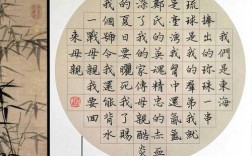 我們是東海
捧出的珍珠一串
琉球是我的群弟我就
是台灣我胸中還氤氳
鄭氏的英魂精忠的
了我的家傳母親酷炎
夏日要曬死我了賜
我個號令我還能背水
一戰母親我要回
來母親